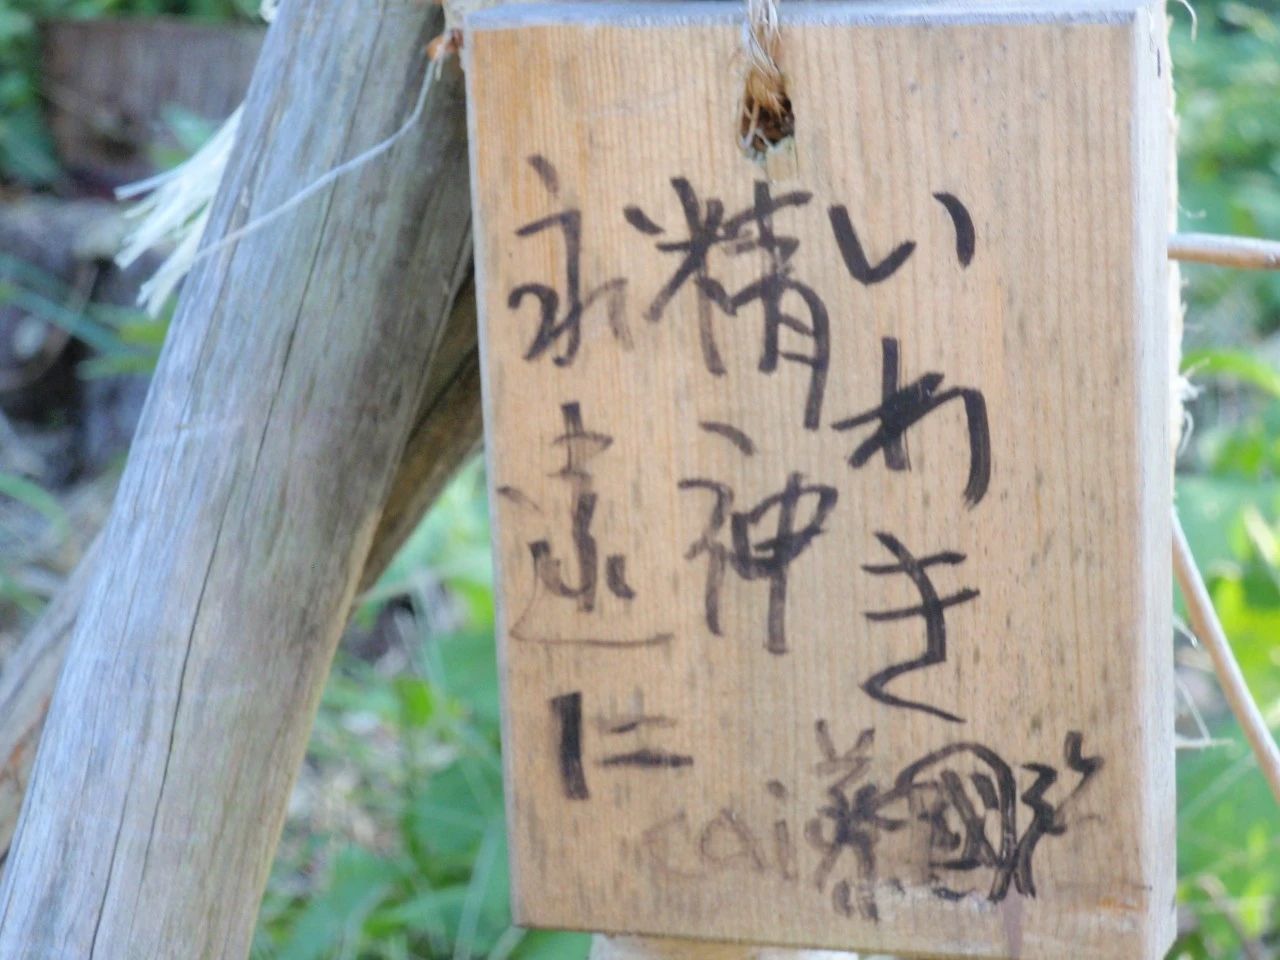 いわき
精神
永遠に